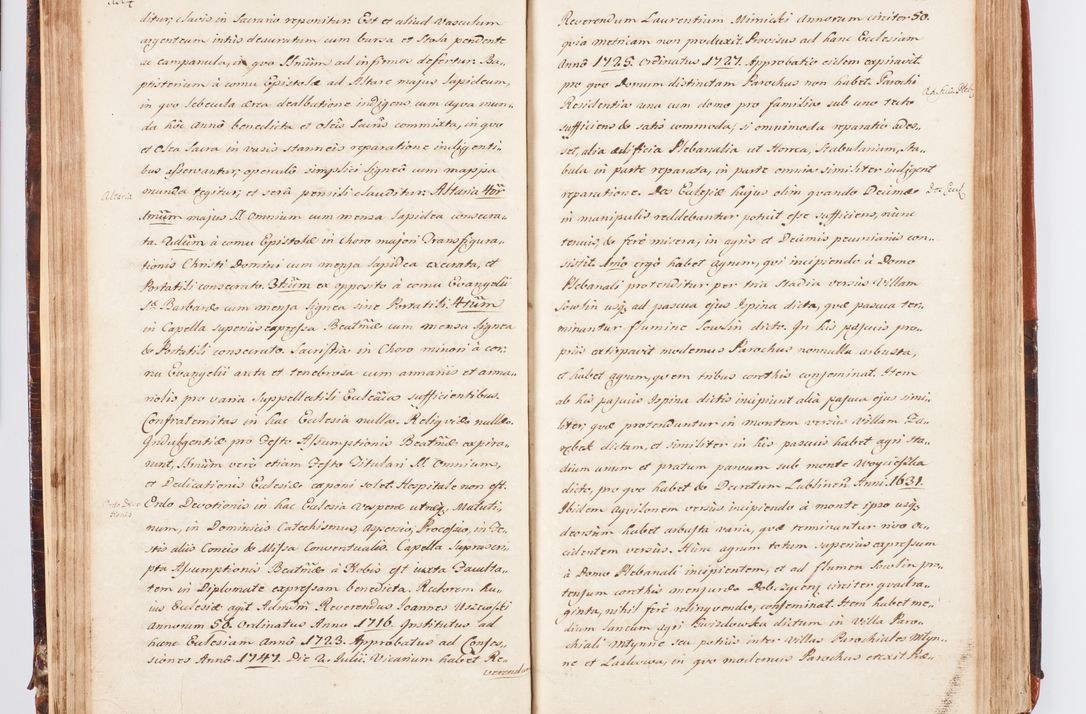 ditur, clavis in Sacrario reponitur. Est et aliud Vasculum
argenteum intùs deauratum cum bursa et Stola pendente
ac campanula, in quo SSmūm ad infirmos defertur. Ba„
ptisterium à cornu Epistolæ ad Altare majus lapideum,
in quo lebecula ærea dealbatione indigens cum aqua mun„
da hôc annô benedicta et Oleis Sacris commixta, in quo
et Olea Sacra in vasis stanneis reparatione indigenti„
bus asservantur, operculô simplici ligneô cum mappa
munda tegitur, et serâ pensili clauditur. Altaria 4or
Altaria
1mūm majus SS. Omnium cum mensa lapidea consecra„
ta. 2dūm à cornu Epistolæ in Choro majori Transfigura„
tionis Christi Domini cum mensa lapidea execrata, et
Portatili consecrato. 3tiūm ex opposito à cornu Evangelii
S. Barbaræ cum mensa lignea sine Portatili. 4tūm
in Capella superiùs expressa Beatmæ cum mensa lignea
& Portatili consecrato. Sacristia in Choro minori à cor„
nu Evangelii arcta et tenebrosa cum armariis et arma„
riolis pro varia Suppellectili Ecclēaca sufficientibus.
Confraternitas in hac Ecclesia nulla. Reliquiæ nullæ.
Indulgentiæ pro Festo Assumptionis Beatmæ expira„
runt, SSmum verò etiam Festo Titulari SS. Omnium,
et Dedicationis Ecclesiæ exponi solet. Hospitale non est.
Ordo Devotionis in hac Ecclesia Vesperæ utræq; Matuti„
Ordo Devo
tionis
num, in Dominicis Catechismus, Aspersio, Processio, in Fe„
stis aliis Concio & Missa Conventualis. Capella suprascri„
pta Assumptionis Beatmæ à Nobis est juxta Faculta„
tem in Diplomate expressam benedicta. Rectorem hu„
ius Ecclesiæ agit Admōm Reverendus Joannes Uszewski
annorum 58. Ordinatus Anno 1716. Institutus ad
hanc Ecclesiam Annô 1723. Approbatus ad Confes„
siones Annô 1747. Die 2. Julii. Vicarium habet Re„
verendum
Reverendum Laurentium Mirnicki annorum circiter 50.
quia metricam non produxit. Provisus ad hanc Ecclesiam
Annô 1725. Ordinatus 1727. Approbatio eidem expiravit
pro quo Domum distinctam Parochus non habet. Parochi
Residentia una cum domo pro familia sub uno tecto
sufficiens & satis commoda, si omnimoda reparatio ades„
set, alia ædificia Plebanalia ut Horrea, Stabulorum, Sta„
bula in parte reparata, in parte omnia similiter indigent
reparatione. Dos Ecclesiæ hujus olim quando Decimæ
in manipulis reddebantur potuit esse sufficiens, nunc
tenuis, & ferè misera, in agris et Decimis pecuniariis con„
sistit. Imo ergò habet agrum, qui incipiendo à Domo
Plebanali protenditur per tria Stadia versùs Villam
Sowlin usq; ad pascua ejus Ispina dicta, quæ pascua ter„
minantur flumine Sowlin dicto. In his pascuis pro„
priis extirpavit modernus Parochus nonnulla arbusta,
et habet agrum, quem tribus corthis conseminat. Item
ab his pascuis Ispina dictis incipiunt alia pascua ejus simi„
liter, quæ protenduntur in montem versùs Villam Za„
rebek dictam, et similiter in his pascuis habet agri sta„
dium unum et pratum parvum sub monte Woyciesska
dicto, pro quo habet & Decretum Lublinēn. Anni 1631.
Ibidem aquilonem versùs incipiendo à monte ipso usq;
deorsùm habet arbusta varia, quæ terminantur rivo oc„
cidentem versùs. Hunc agrum totum superiùs expressum
à Domo Plebanali incipientem, et ad flumen Sowlin pro„
tensum corthis mensuræ Dobczycen. circiter quadra„
ginta, nihil ferè relinquendo, conseminat. Item habet me„
dium laneum agri Gwizdowska dictum in Villa Paro„
chiali Młynne seu potiùs inter Villas Parochiales Młyn„
ne et Laskowa, in quo modernus Parochus erexit Præ„
Dos Eccl.